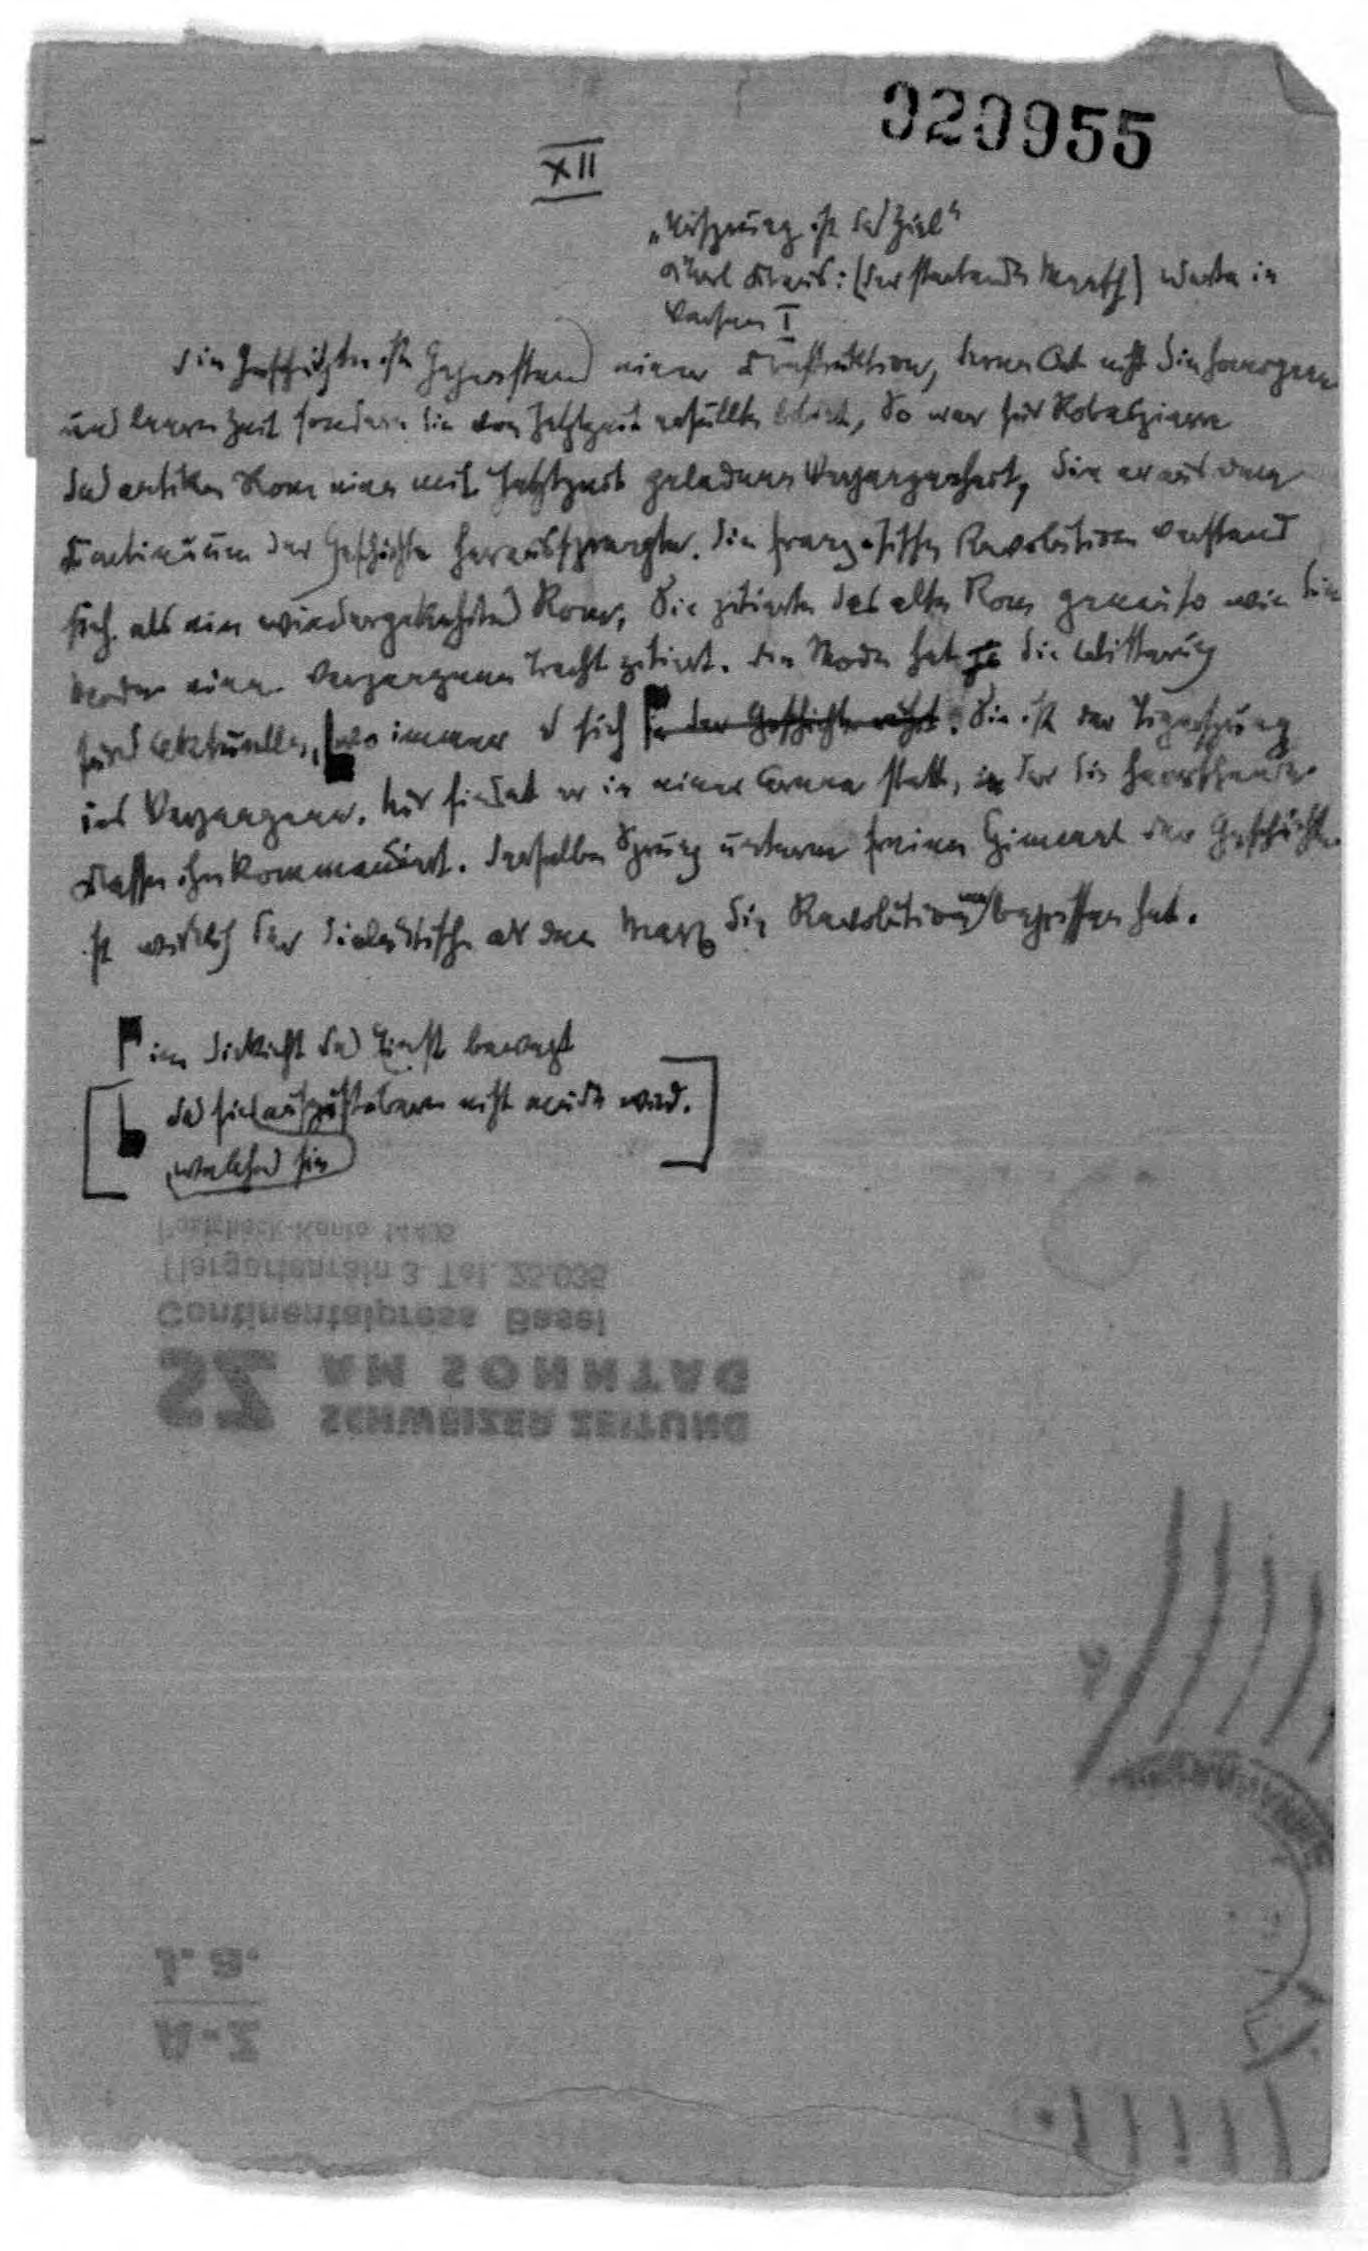 020955
XII
„Ursprung ist das Ziel“
Karl Kraus: (Der sterbende Mensch) Worte in
Versen I
Die Geschichte ist Gegenstand einer Konstruktion, deren Ort nicht die homogene
und leere Zeit sondern die von Jetztzeit erfüllte bildet, So war für Robespierre
das antike Rom eine mit Jetztzeit geladene Vergangenheit, die er aus dem
Kontinuum der Geschichte heraussprengte. Die französische Revolution verstand
sich als ein wiedergekehrtes Rom, Sie zitierte das alte Rom genauso wie die
Mode eine vergangene Tracht zitiert. Die Mode hat die Witterung
fürs Aktuelle, wo immer es sich in der Geschichte rührt. Sie ist der Tigersprung
ins Vergangene. Nur findet er in einer Arena statt, in der die herrschende
Klasse ihn kommandiert. Derselbe Sprung unterm freien Himmel der Geschichte
ist wirklich der dialektische als den Marx die Revolution begriffen hat.
im Dickicht des Einst bewegt
das sie auszustöbern nicht müde wird.
welches sie
Postcheck-Konto
Tiergartenrain 3 Tel. 25.035
Continentalpress Basel
SZ AM SONNTAG
SCHWEIZER ZEITUNG